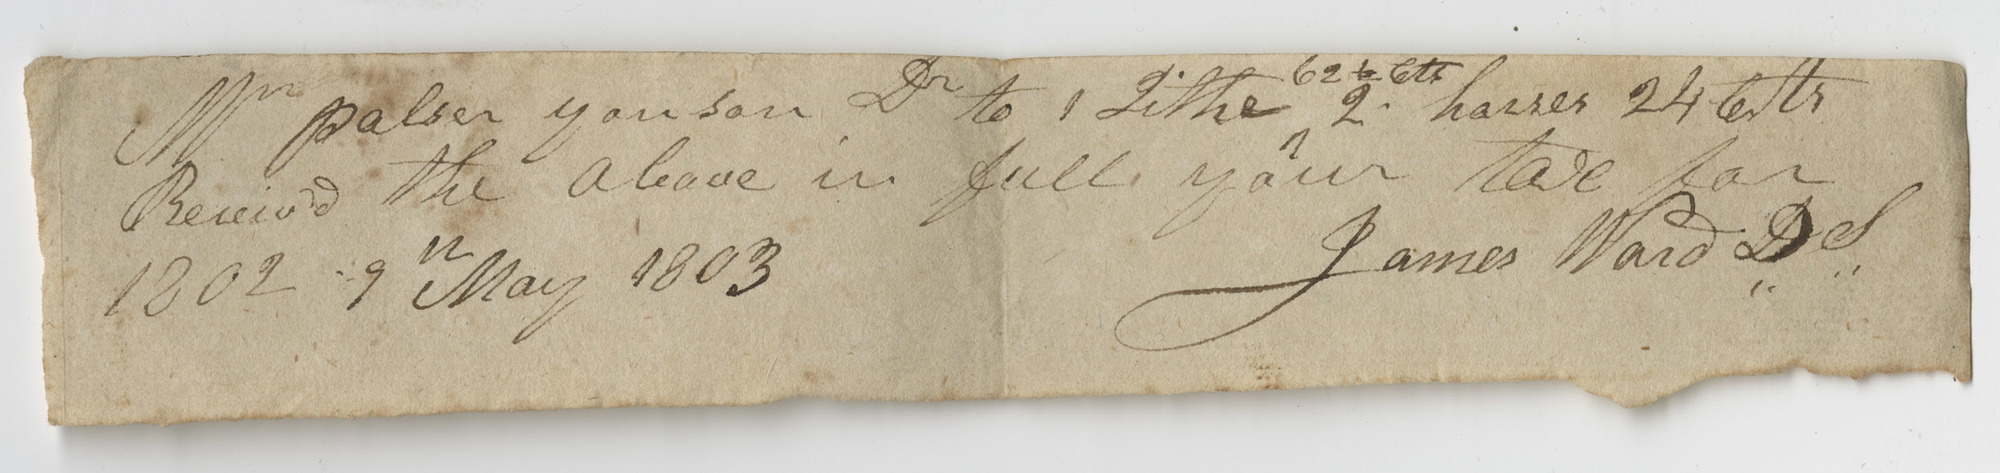 Mr palser yonson Dr to 1 Tithe 62 ½ Cts 2 horses 24 Cts
Receiv'd the above in full your tax for
1802 9th May 1803 James Ward D S